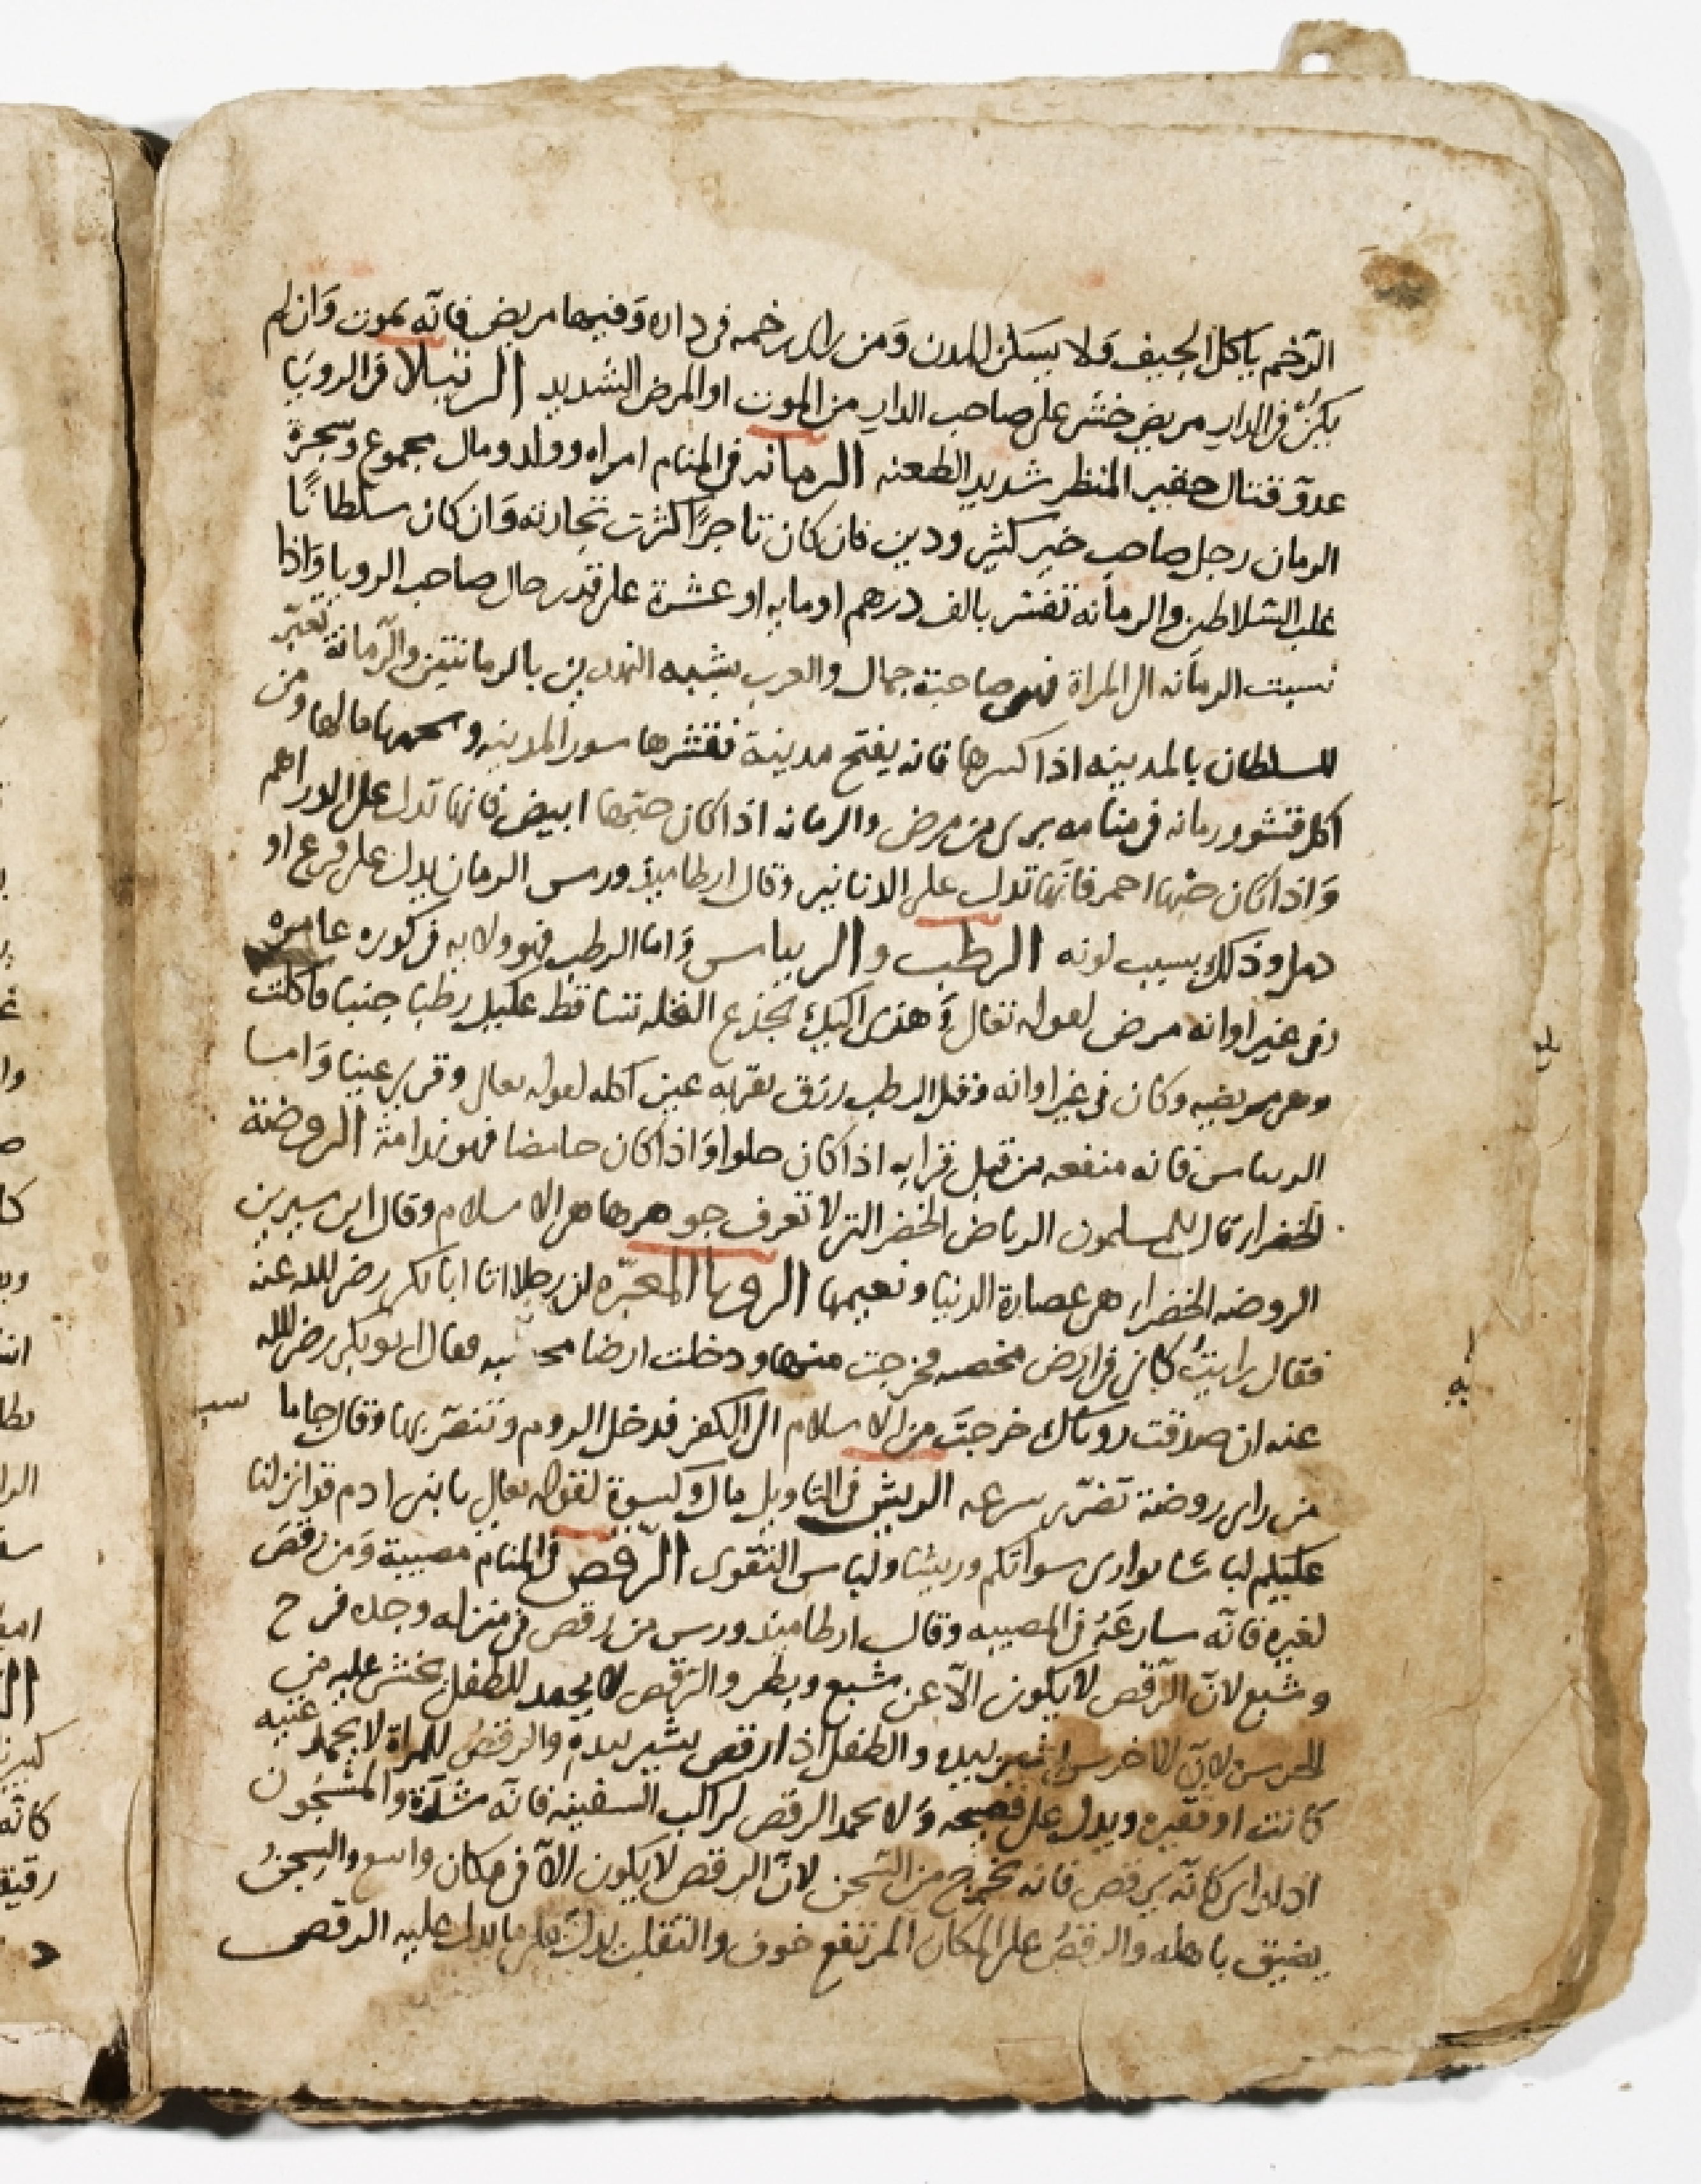 الرخم ياكل الجيف ولا يسكن المدن ومن راى رخمه فى داره وفيها مريض فانّه يموت وان لم
يكنْ فى الدار مريض خشى على صاحب الدار من الموت او المرض الشديد الرتيلا فى الرويا
عدوّ قتال حقير المنظر شديد الطعنه الرمانه فى المنام امراه وولد ومال مجموع وشجرة
الرمان رجل صاحب خير كثير ودين فان كان تاجرًا كثرت تجارته وان كان سلطانًا
غلب السلاطين والرمانه تفسّر بالف درهم او مايه او عشرة على قدر حال صاحب الرويا واذا
نسبت الرمانه الى المراة فهى صاحبة جمال والعرب يشبه النهدين بالرمانتين والرّمانة تعبّر
للسلطان بالمدينه اذا كسرها فانه يفتح مدينة فقشرها سور المدينه و مالها ومن
اكل قشور رمانه فى منامه برى من مرض والرمانه اذا كان حبّها ابيض فانها تدل على الدراهم
وَاذا كان حبّها احمر فانّها تدل على الدنانير وقال ارطاميدورس الرمان يدل على فزع او
دمل وذلك بسبب لونه الرطب والريباس وَاما الرطب فهو ولايه فى كوره عامره
وفى غير اوانه مرض لقوله تعالى وَهزى اليك بجذع النخله تساقط عليك رطبا جنيا فاكلت
وهى مريضه وكان فى غير اوانه وقيل الرطب رزق تقر به عين اكله لقوله تعالى وقرى عينا وَاما
الريباس فانه منفعه من قبل قرابه اذا كان حلوا وَاذا كان حامضا فهو ندامة الروضة
الخضرا قال المسلمون الرياض الخضر التى لا تعرف جوهرها هى الاسلام وقال ابن سيرين
الروضه الخضراء هى عصارة الدنيا ونعيمها الرويا المعبّره ان رجلا اتا ابا بكر رضى الله عنه
فقال رايتُ كانى فى ارض مخصبه فخرجت منها ودخلت ارضا فقال ابو بكر رضى الله
عنه ان صدقت روياك خرجتَ من الاسلام الى الكفر فدخل الروم وتنصّر بها وقال جاماسب
من راى روضة تضرّى سرعه الريش فى التاويل مال وكسوة لقوله تعالى يا بنى ادم قد انزلنا
عليكم لباسًا يوارى سواتكم وريشا ولباس التقوى الرّقص فى المنام مصيبة وَمن رقص
لغيره فانّه سارعَهُ فى المصيبه وقال ارطاميدورس من رقص فى منزله وجده فرح
وشبع لانّ الرّقص لا يكون الّا عن شبع وبطر والرّقص لا يحمد للطفل يخشى عليه من
الخرس لانّ الاخرس يشير بيده والطفل اذا رقص يشير بيده والرقصُ للمراة لا يحمد غنيه
كانت او فقيره ويدل على فضيحه وَلا يحمد الرقص لراكب السفينه فانّه شدّة والمسْجون
اذا راى كانّه يرقص فانه يخرج من السّجن لانّ الرقص لا يكون الّا فى مكان واسع والسجنُ
يضيق باهله والرقصُ على المكان المرتفع خوف والتقلب يدلّ على ما يدل عليه الرقص